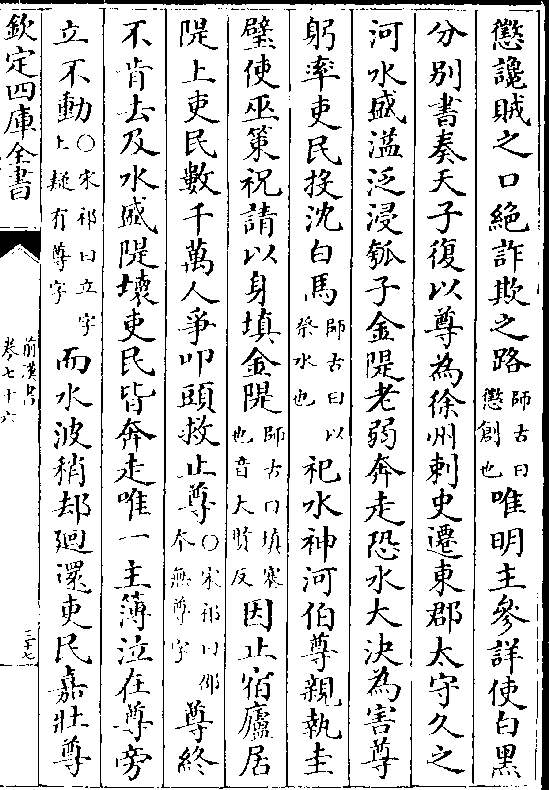 懲讒賊之口絶詐欺之路師古曰懲創也唯明主參詳使白黑
分别書奏天子復以尊為徐州刺史遷東郡太守久之
河水盛溢泛浸瓠子金隄老弱奔走恐水大決為害尊
躬率吏民投沈白馬師古曰以祭水也祀水神河伯尊親執圭
璧使巫策祝請以身填金隄師古曰填塞也音大賢反因止宿廬居
隄上吏民數千萬人爭叩頭救止尊○宋祁曰邵本無尊字尊終
不肯去及水盛隄壞吏民皆奔走唯一主簿泣在尊旁
立不動○宋祁曰立字上疑有尊字而水波稍却廻還吏民嘉壯尊
欽定四庫全書
前漢書
卷七十六
三十七